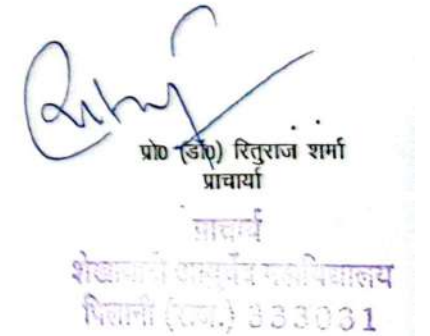 प्रो0 (डॉ0) रितुराज शर्मा
प्राचार्या
प्राचार्य
शेखावाटी आयुर्वेद महाविद्यालय
पिलानी (राज.) 333031